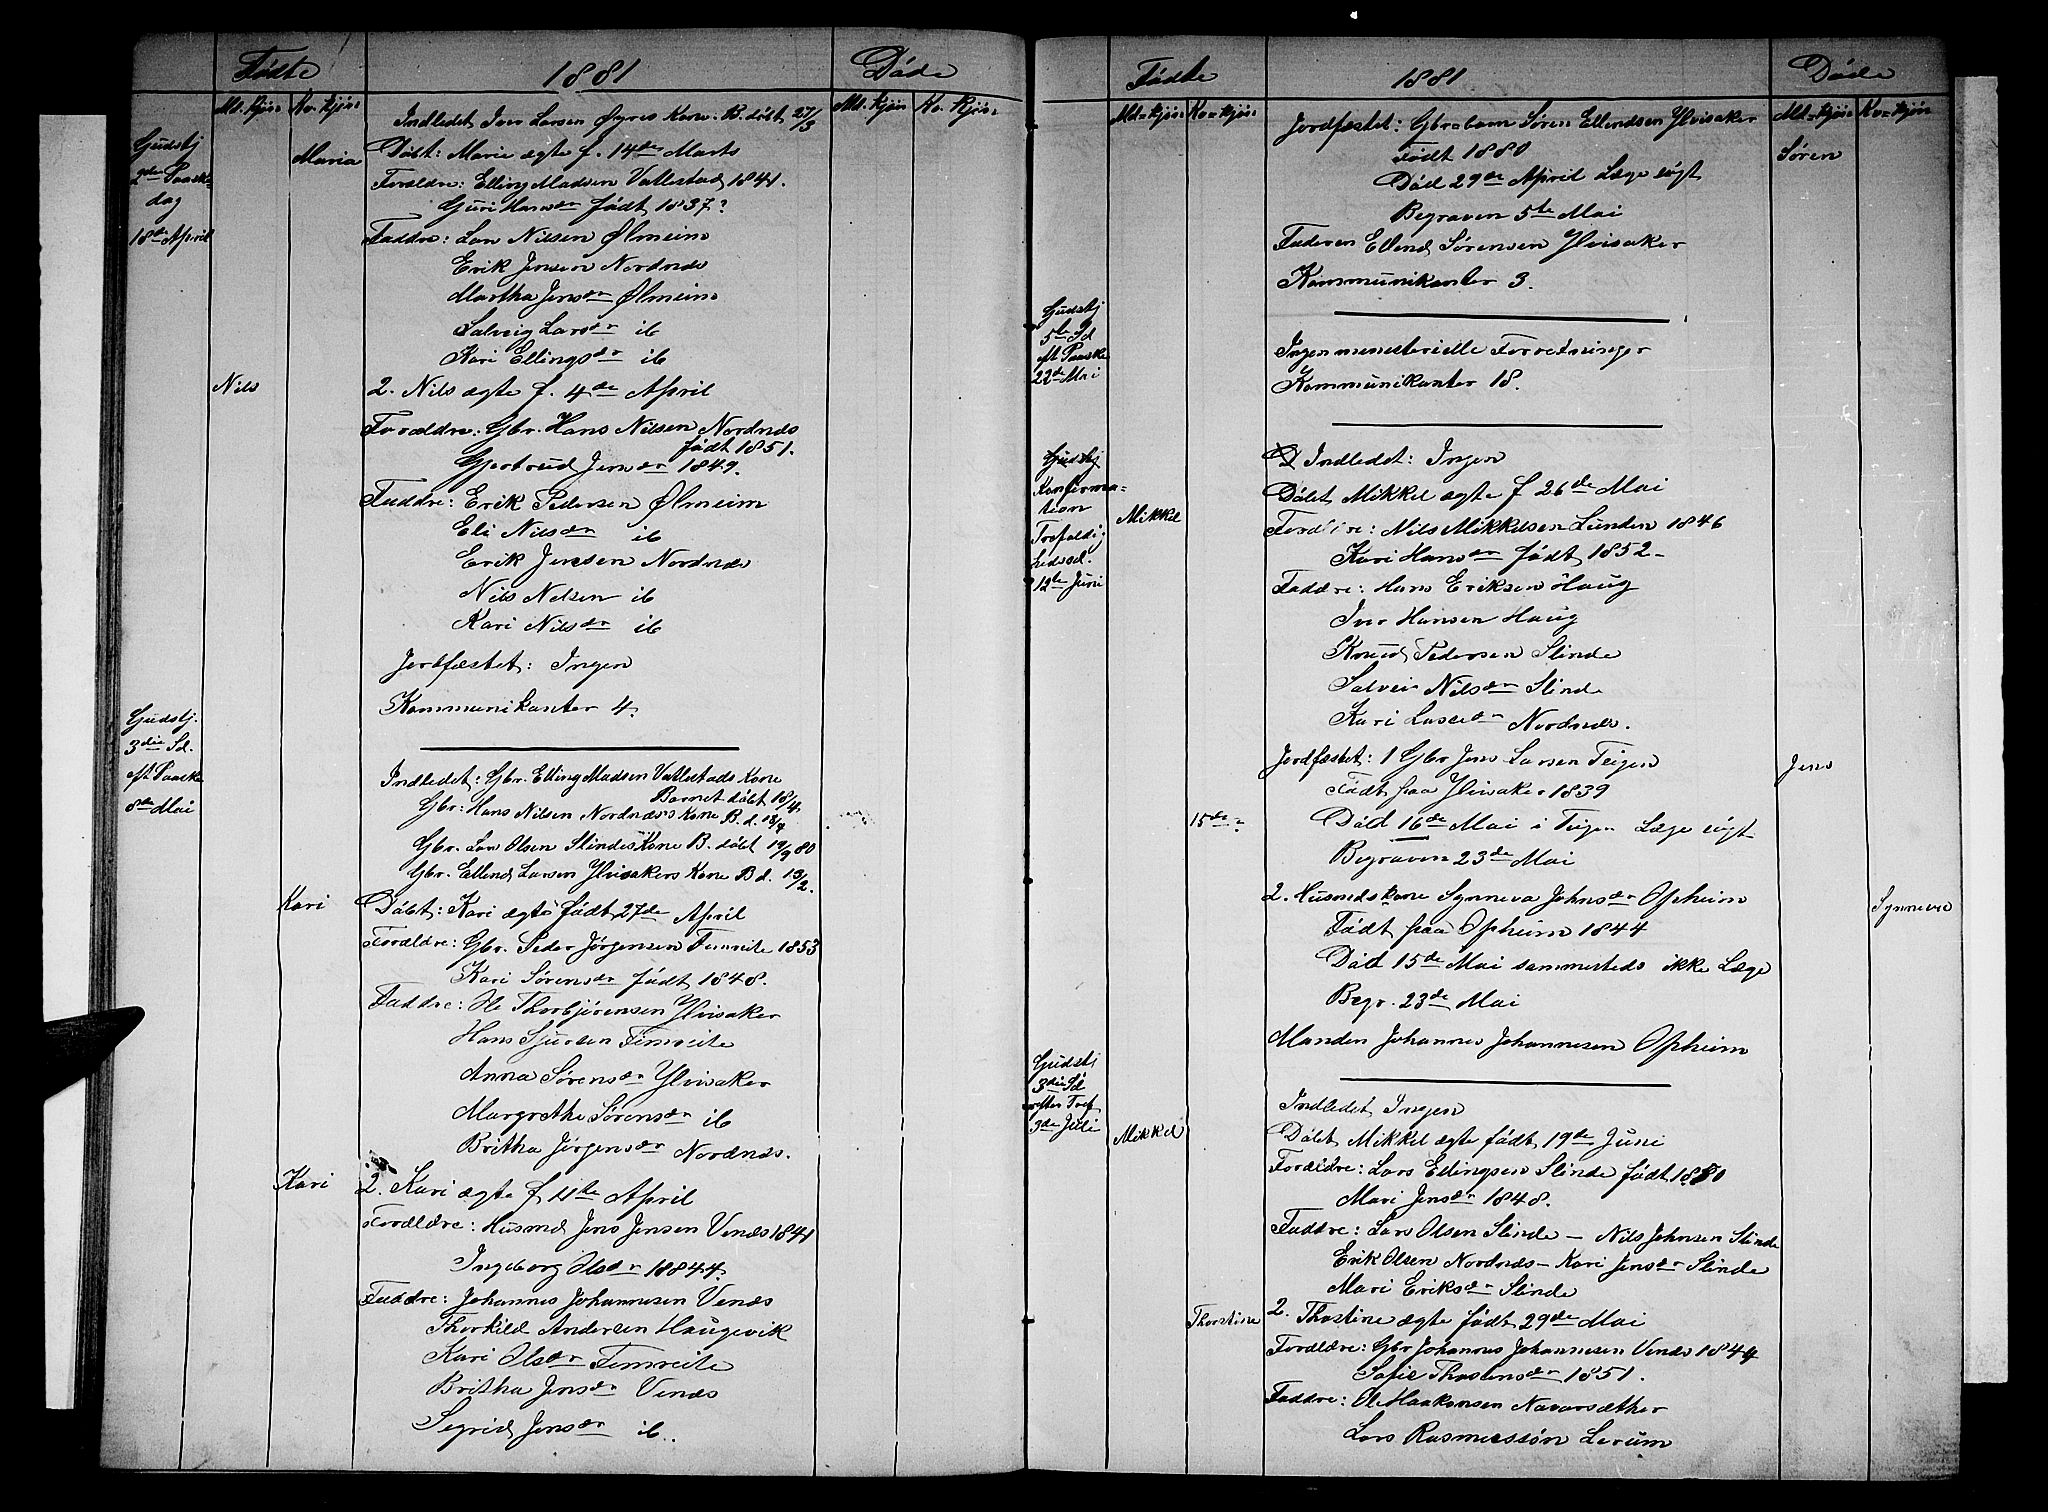 Fødte
1881
Døde
Md. Kjøn:
Kv. Kjøn:
Md. Kjøn
Kv. Kjøn:
Indledet Iver Larsen Øyres Kone. B. døbt 27/3
Gudstj
2den Paaske
dag
18de April
Maria
Døbt: Marie ægte f. 14de Marts
Forældre: Elling Madsen Vallestad 1841.
Guri Hansdr født 1837?
Faddre: Lars Nilsen Ølmeim
Erik Jensen Nordnæs
Martha Jensdr Ølmeim
Salveig Larsdr ib
Kari Ellingsdr ib
Nils
2. Nils ægte f. 4de April
Forældre: Gbr. Hans Nilsen Nordnæs
født 1851.
Gjertrud Jensdr 1849.
Faddre: Erik Pedersen Ølmeim
Eli Nilsdr ib
Erik Jensen Nordnæs
Nils Nilsen ib
Kari Nilsdr ib
Jordfæstet: Ingen
Kommunikanter 4.
Gudstj.
3die Sd.
eft Paaske
8de Mai
Indledet: Gbr. Elling Madsen Vallestads Kone
Barnet døbt 18/4.
Gbr: Hans Nilsen Nordnæs Kone B. d. 18/4
Gbr. Lars Olsen Slindes Kone B. døbt 19/9 80
Gbr. Ellend Larsen Ylvisakers Kone B d. 13/2.
Kari
Døbt: Kari ægte født 27de April
Forældre: Gbr. Peder Jørgensen Fimreite 1853
Kari Sørensdr født 1848.
Faddre: Ole Thorbjørensen Ylvisaker
Hans Sjursen Fimreite
Anna Sørensdr Ylvisaker
Margrethe Sørensdr ib
Britha Jørgensdr Nordnæs.
Kari
2. Kari ægte f. 11te April
Forældre: Husmd Jens Jensen Venæs 1841
Ingeborg Olsdr 1844.
Faddre: Johannes Johannesen Venæs
Thorkild Andersen Haugevik
Kari Olsdr Fimreite
Britha Jensdr Venæs
Segrid Jensdr ib.
Fødte
1881
Døde
Md=Kjøn:
Kv=Kjøn:
Md=Kjøn:
Kv=Kjøn
Jordfæstet: Gbr=barn Søren Ellendsen Ylvisaker
Født 1880
Søren
Død 29de April Læge søgt
Begraven 5te Mai
Faderen Ellend Sørensen Ylvisaker
Kommunikanter 3.
Gudstj
5te Sd
eft Paaske
22de Mai
Ingen menesterielle Forretninger
Kommunikanter 18.
Gudstj
Konfirma=
tion
Trefoldig
hedssd.
12te Juni
Indledet: Ingen
Mikkel
Døbt Mikkel ægte f 26de Mai
Forældre: Nils Mikkelsen Lunden 1846
Kari Hansdr født 1852
Faddre: Hans Eriksen Haug
Iver Hansen Haug
Knud Pedersen Slinde
Salvei Nilsdr Slinde
Kari Lassedr Nordnæs.
Jordfæstet: 1 Gbr Jens Larsen Teigen
Jens
Født paa Ylvisaker 1839
15de
Død 16de Mai i Teigen Læge søgt
Begraven 23de Mai
2. Husmdskone Synneva Johnsdr Opheim
Synneva
Født paa Opheim 1844
Død 15de Mai sammesteds ikke Læge
Begr. 23de Mai
Manden Johannes Johannesen Opheim
Gudstj
3die Sd
efter Tref
3de Juli
Indledet Ingen
Mikkel
Døbt Mikkel ægte født 19de Juni
Forældre: Lars Ellingsen Slinde født
Mari Jensdr 1848.
Faddre: Lars Olsen Slinde – Nils Johnsen Slinde
Erik Olsen Nordnæs – Kari Jensdr Slinde
Mari Eriksdr Slinde
Thorstine
2. Thostine ægte født 29de Mai
Forældre: Gbr Johannes Johannesen Venæs 1844
Sofie Thostensdr 1851.
Faddre: Ole Haakensen Navarsæther
Lars Rasmussøn Lerum